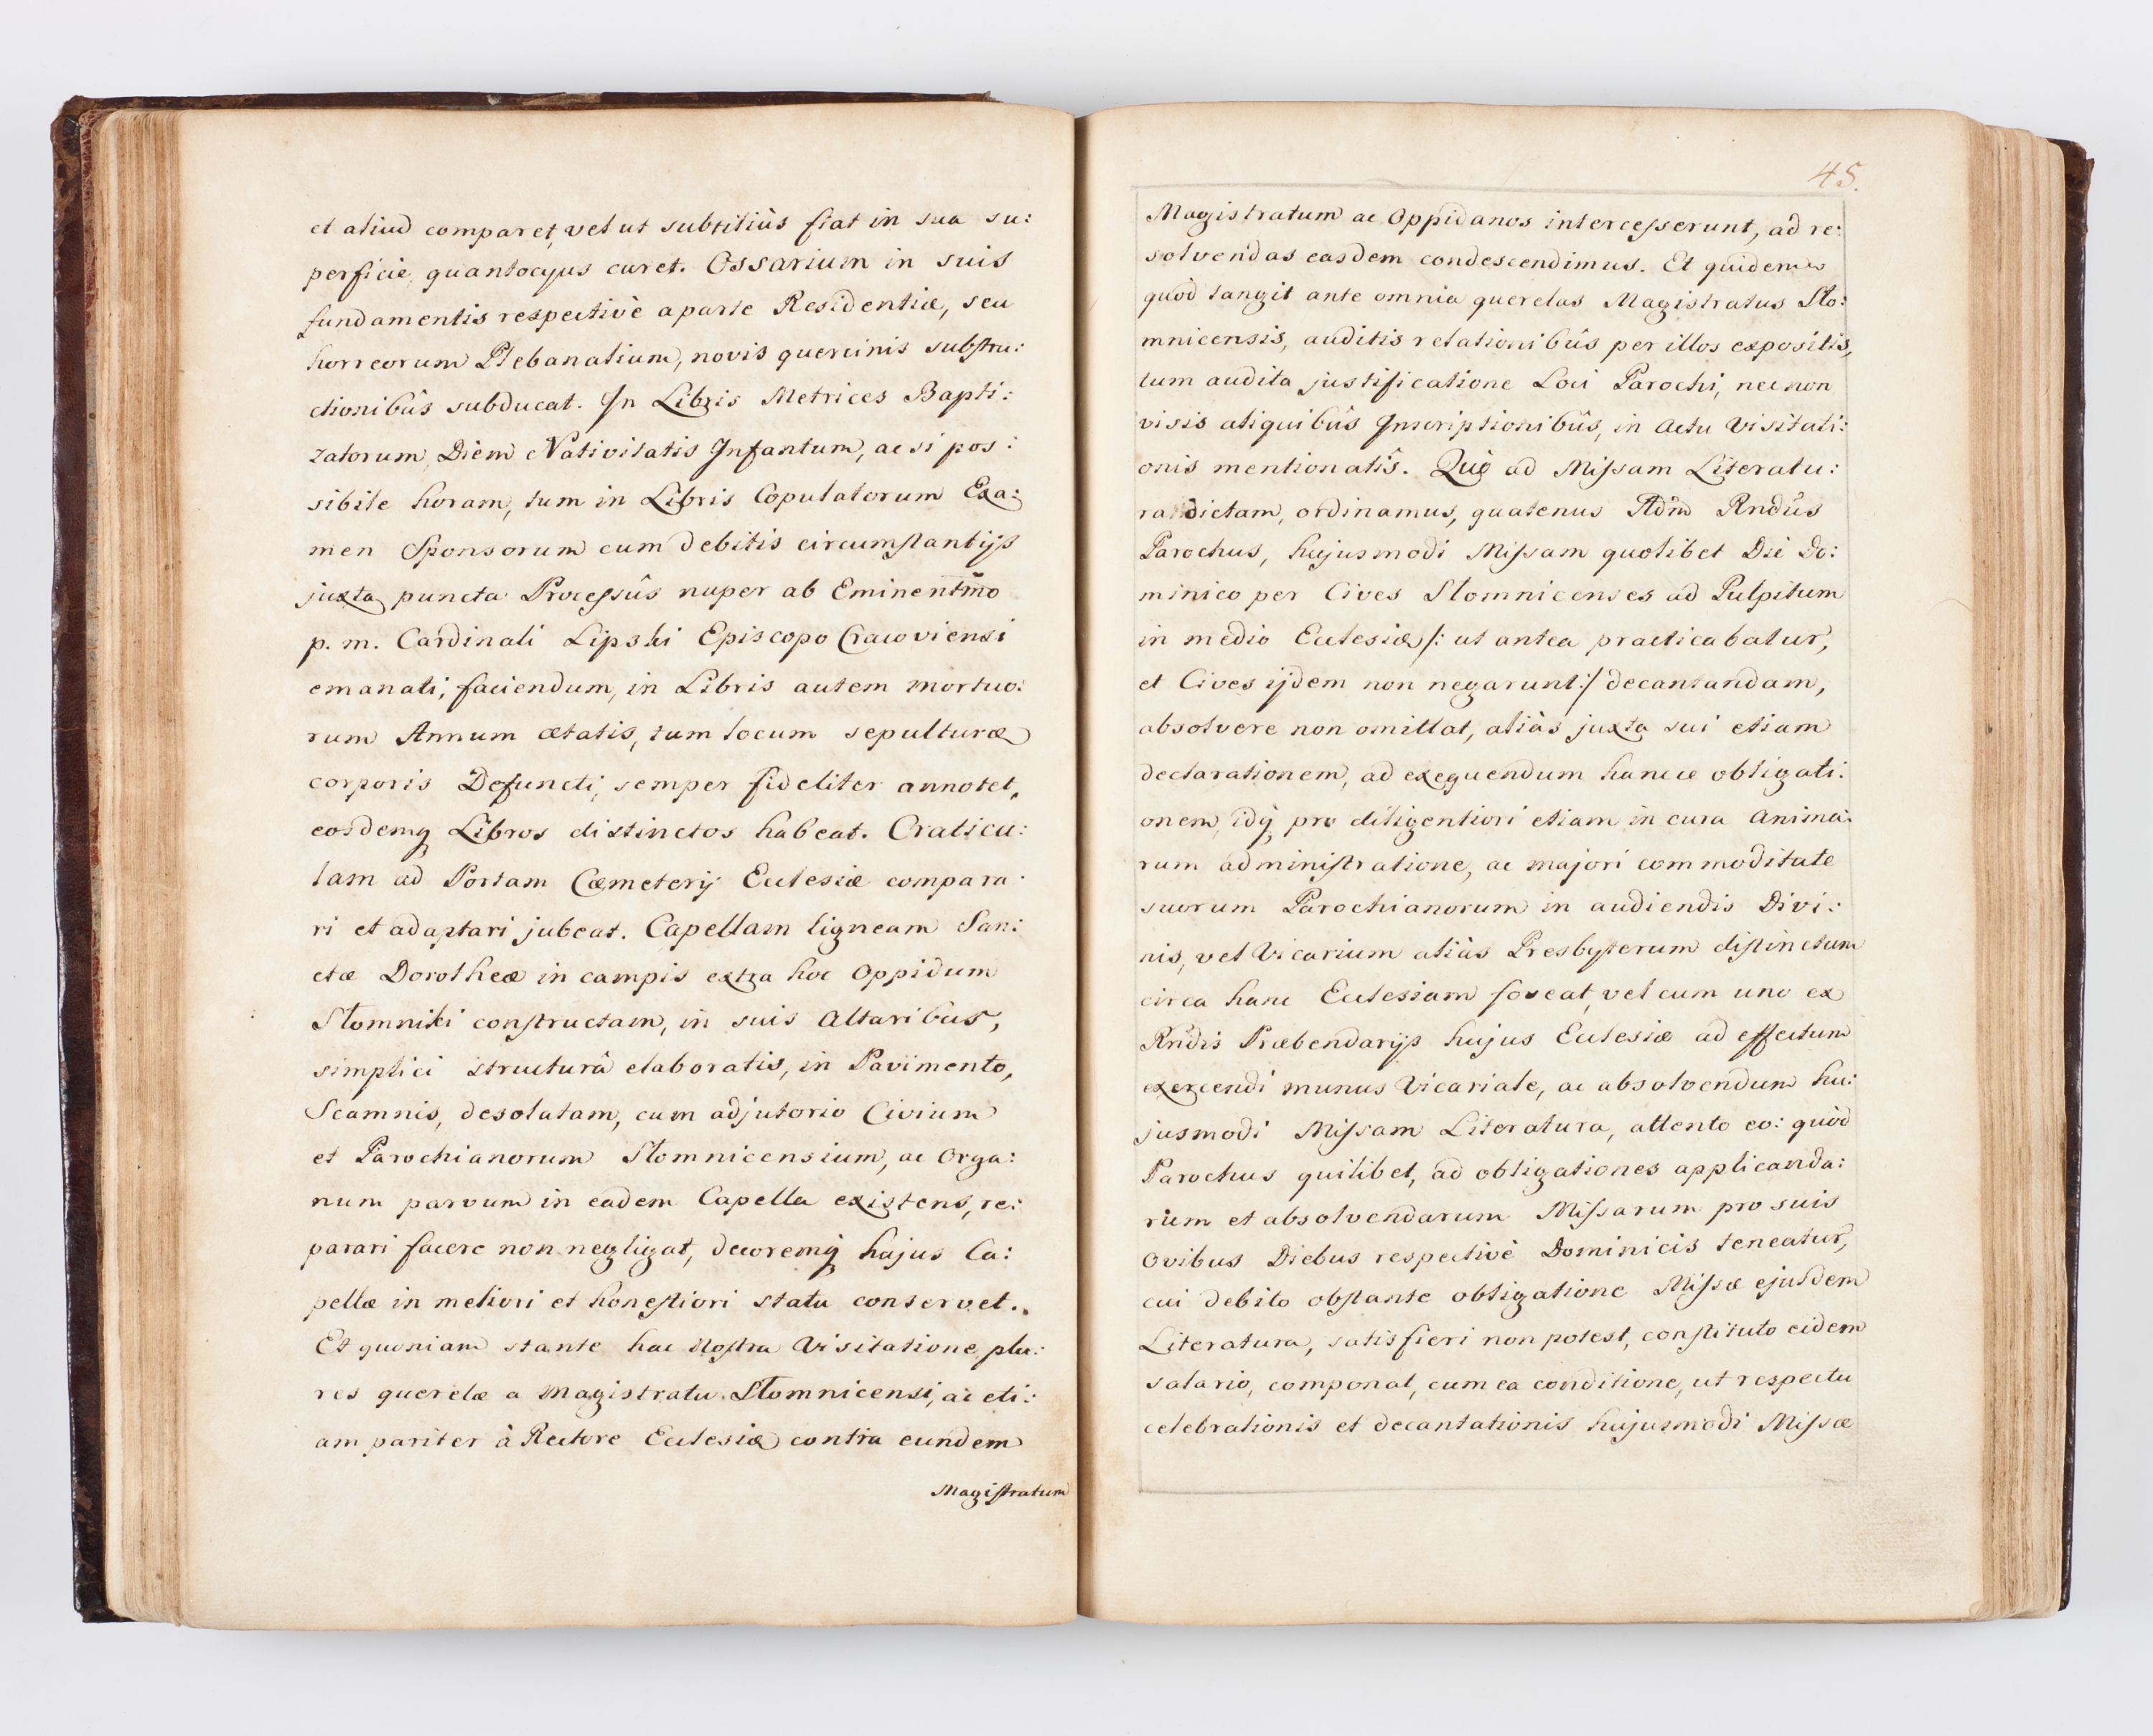 et aliud comparet, vel ut subtiliùs fiat in sua su:
perficie, quantocyus curet. Ossarium in suis
fundamentis respectivè a parte Residentiæ, seu
horreorum Plebanalium, novis quercinis substru:
ctionibûs subducat. In Libris Metrices Bapti:
zatorum, Diem Nativitatis Infantum, ac si pos:
sibile horam, tum in Libris Copulatorum Exa:
men Sponsorum cum debitis circumstantijs
juxta puncta Processûs nuper ab Eminentm̃o
p. m. Cardinali Lipski Episcopo Cracoviensi
emanati, faciendum, in Libris autem mortuo:
rum Annum ætatis, tum locum sepulturæ
corporis Defuncti, semper fideliter annotet,
eosdemq Libros distinctos habeat. Craticu:
lam ad Portam Cæmeterij Ecclesiæ compara:
ri et adaptari jubeat. Capellam ligneam San:
ctæ Dorotheæ in campis extra hoc Oppidum
Słomniki constructam, in suis Altaribus,
simplici structurâ elaboratis, in Pavimento,
Scamnis, desolatam, cum adjutorio Civium
et Parochianorum Słomnicensium, ac Orga:
num parvum in eadem Capella existens, re:
parari facere non negligat, decoremq hujus Ca:
pellæ in meliori et honestiori statu conservet.
Et quoniam stante hac Nostra Visitatione, plu:
res querelæ a Magistratu Słomnicensi, ac eti:
am pariter à Rectore Ecclesiæ contra eundem
Magistratum
45.
Magistratum ac Oppidanos intercesserunt, ad re:
solvendas easdem condescendimus. Et quidem
quòd tangit ante omnia querelas Magistratus Sło:
mnicensis, auditis relationibûs per illos expositis,
tum audita justificatione Loci Parochi, necnon
visis aliquibûs Inscriptionibûs, in Actu Visitati:
onis mentionatîs. Quò ad Missam Literatu:
ra dictam, ordinamus, quatenus Adm̃ Rndûs
Parochus, hujusmodi Missam quolibet Die Do:
minico per Cives Słomnicenses ad Pulpitum
in medio Ecclesiæ /: ut antea practicabatur,
et Cives ijdem non negarunt :/ decantandam,
absolvere non omittat, aliàs juxta sui etiam
declarationem, ad exequendum hancce obligati:
onem, idq pro diligentiori etiam in cura anima:
rum administratione, ac majori commoditate
suorum Parochianorum in audiendis Divi:
nis, vel Vicarium aliàs Presbyterum distinctum
circa hanc Ecclesiam foveat, vel cum uno ex
Rndis Præbendarijs hujus Ecclesiæ ad effectum
exercendi munus Vicariale, ac absolvendum hu:
jusmodi Missam Literatura, attento eo: quòd
Parochus quilibet, ad obligationes applicanda:
rum et absolvendarum Missarum pro suis
Ovibus Diebus respectivè Dominicis teneatur,
cui debito obstante obligatione Missæ ejusdem
Literatura, satisfieri non potest, constituto eidem
salario, componat, cum ea conditione, ut respectu
celebrationis et decantationis hujusmodi Missæ